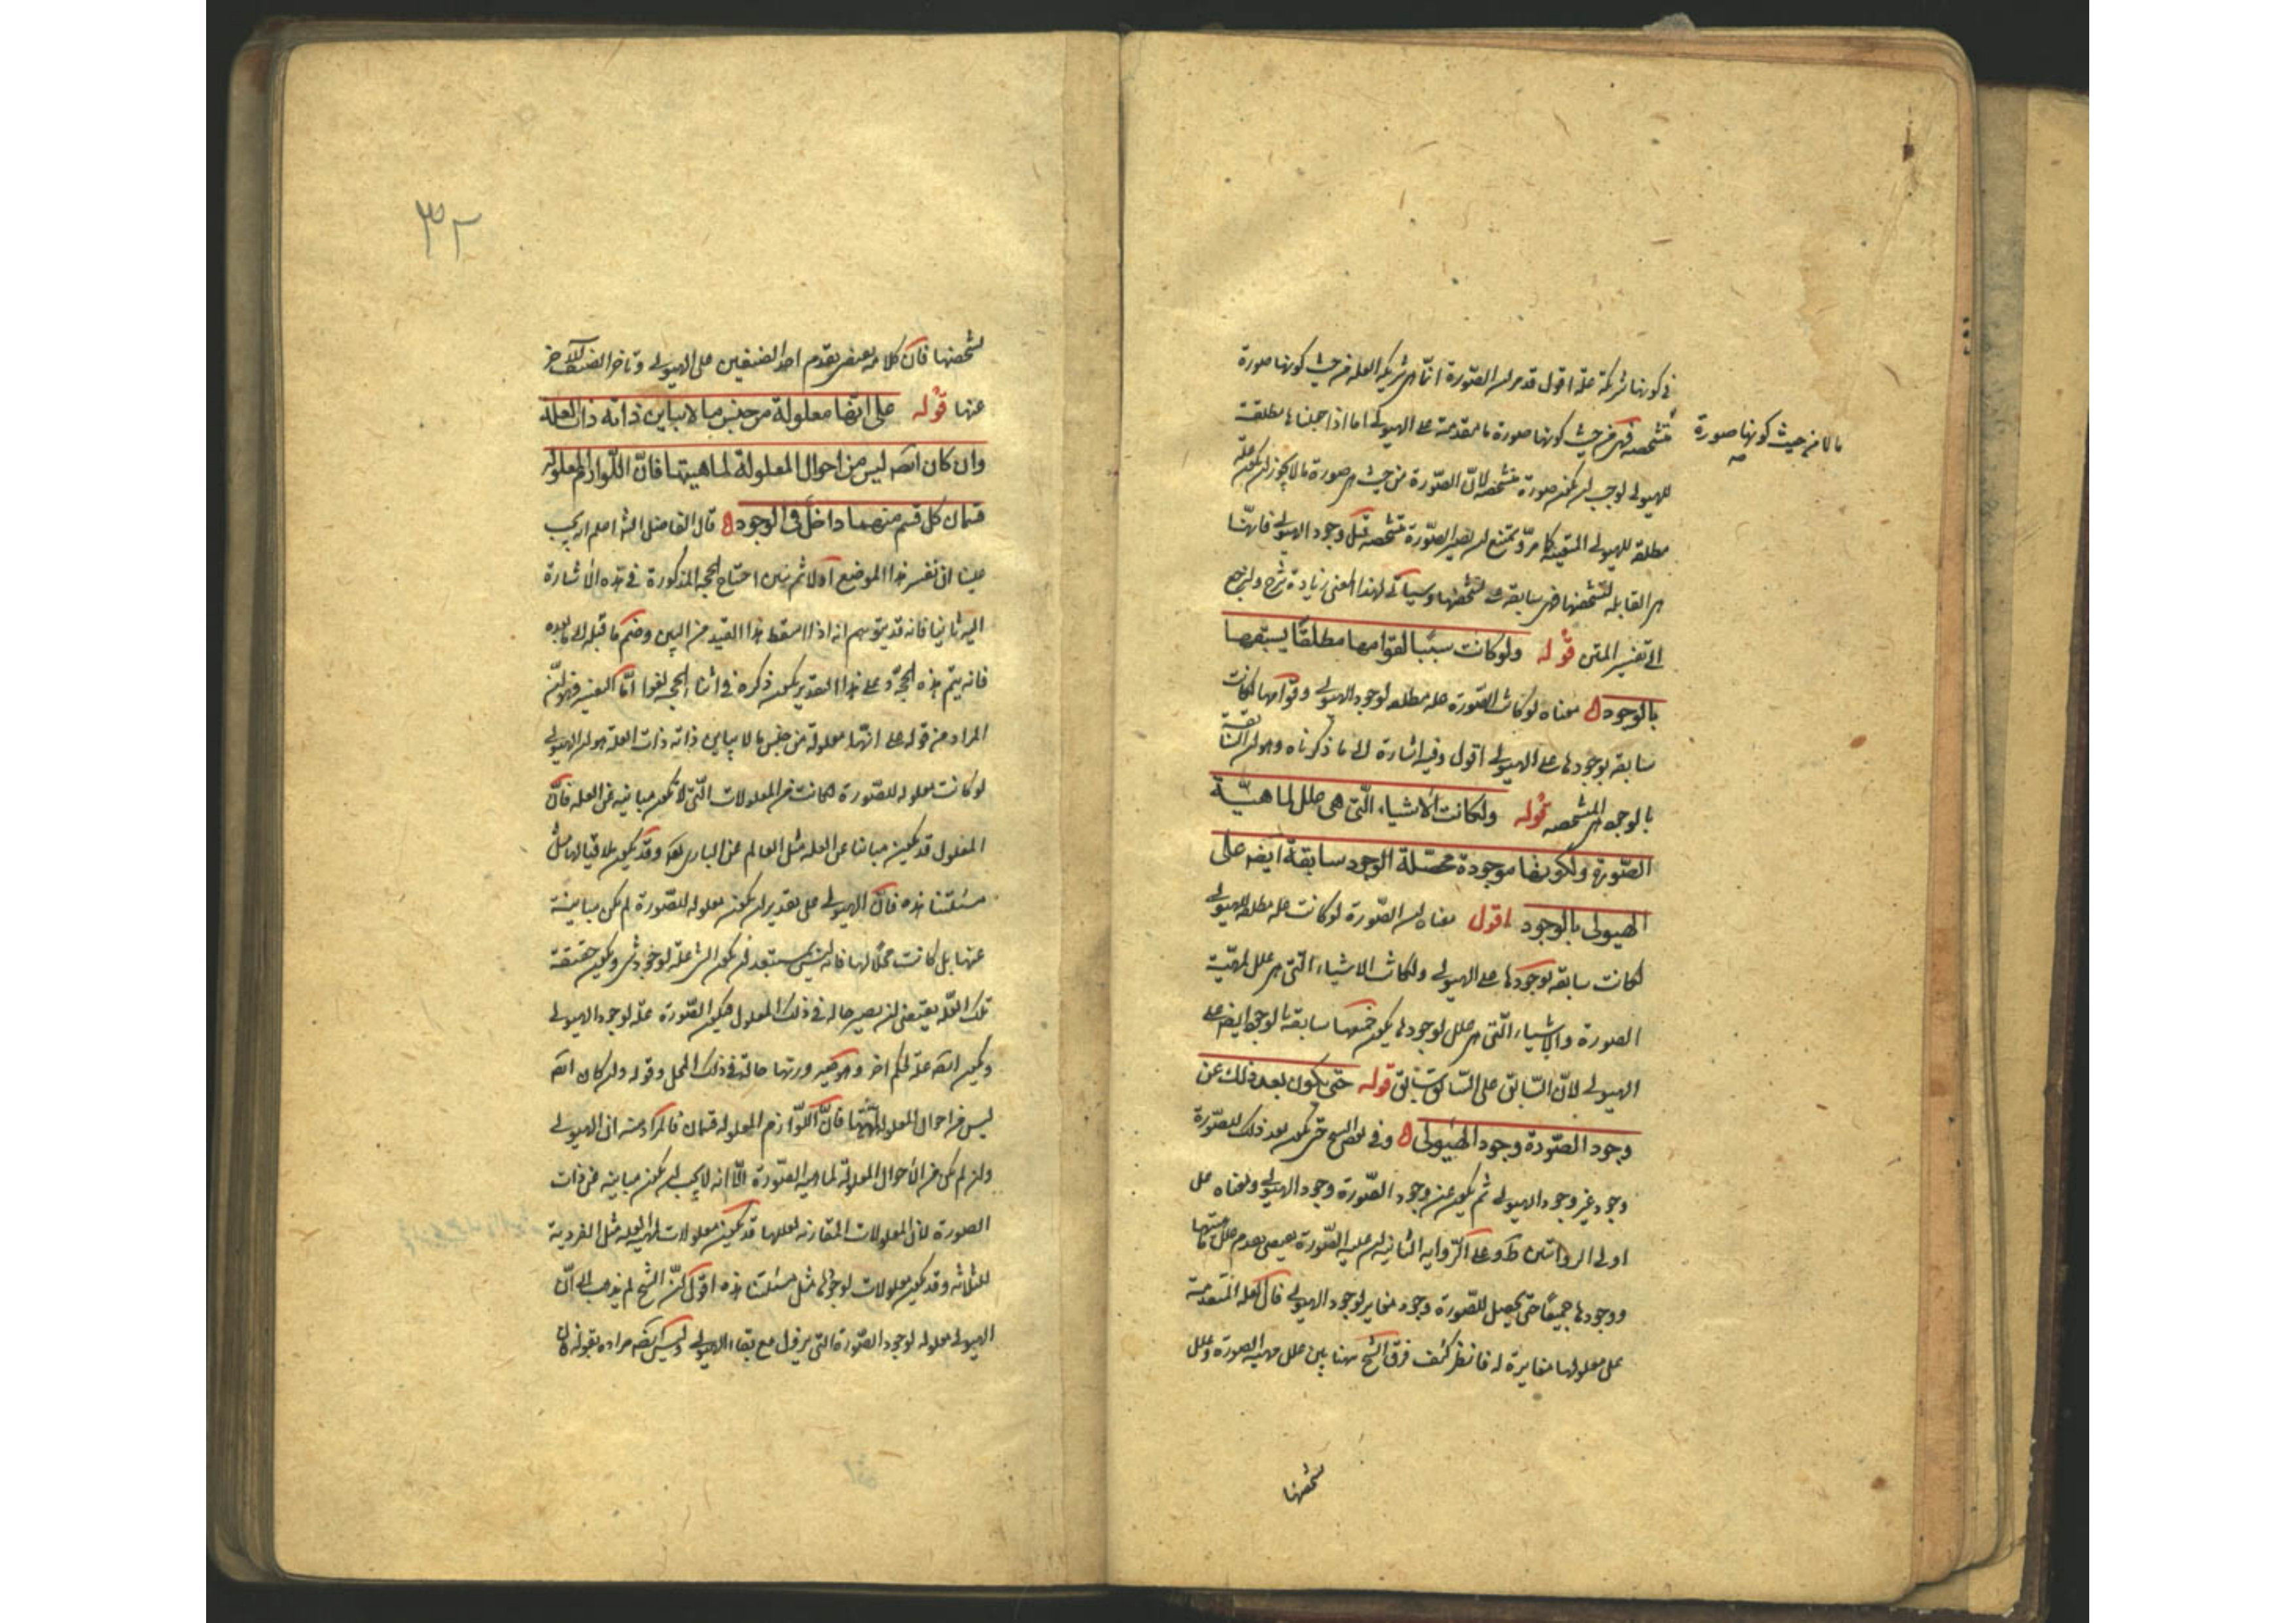 في كونها شريكة علة اقول قد مر ان الصورة انما هي شريكة العلة من حيث كونها صورة
ما لا من حيث كونها صورة
متشخصة فهي من حيث كونها صورة ما متقدمة على الهيولى اما اذا جعلناها مطلقة
للهيولى لوجب ان يكون صورة متشخصة لان الصورة من حيث هي صورة ما لا يجوز ان يكون علة
مطلقة للهيولى المتعينة كما مر ويمتنع ان يصير الصورة متشخصة قبل وجود الهيولى فانها
هي القابلة لتشخصها فهي سابقة على تشخصها وسيأتي لهذا المعنى زيادة شرح ولنرجع
الى تفسير المتن قوله ولو كانت سببا لقوامها مطلقا لسبقتها
بالوجود ه معناه لو كانت الصورة علة مطلقة لوجود الهيولى وقوامها لكانت
سابقة بوجودها على الهيولى اقول وفيه اشارة الى ما ذكرناه وهو ان السابقة
بالوجود هي المتشخصة قوله ولكانت الاشياء التي هي علل لماهية
الصورة ولكونها موجودة محصلة الوجود سابقة ايضا على
الهيولى بالوجود اقول معناه ان الصورة لو كانت علة مطلقة للهيولى
لكانت سابقة بوجودها على الهيولى ولكانت الاشياء التي هي علل لمهية
الصورة والاشياء التي هي علل لوجودها يكون جميعها سابقة بالوجود ايضا على
الهيولى لان السابق على السابق سابق قوله حتى يكون بعد ذلك عن
وجود الصورة وجود الهيولى ه وفي بعض النسخ حتى يكون بعد ذلك للصورة
وجود غير وجود الهيولى ثم يكون عن وجود الصورة وجود الهيولى ومعناه على
اولى الروايتين ط وعلى الرواية الثانية ان علية الصورة يقتضي تقدم علل مهيتها
ووجودها جميعا حتى يحصل للصورة وجود مغاير لوجود الهيولى فان العلة المتقدمة
على معلولها مغايرة له فانظر كيف فرق الشيخ ههنا بين علل مهية الصورة وعلل
تشخصها
٣٢
تشخصها فان كلامه يقتضي تقدم احد الصنفين على الهيولى وتاخر الصنف الاخر
عنها قوله على انها معلولة من جنس ما لا يباين ذاته ذات العلة
وان كان ايضا ليس من احوال المعلولة لماهيتها فان اللوازم المعلولة
قسمان كل قسم منهما داخل في الوجود ه قال الفاضل الشارح اعلم انه يجب
علينا ان نفسر هذا الموضع اولا ثم نبين احتياج الحجة المذكورة في هذه الاشارة
اليه ثانيا فانه قد يتوهم انه اذا اسقط هذا القيد من البين وضم ما قبله الى ما بعده
فانه يتم هذه الحجة وعلى هذا التقدير يكون ذكره في اثناء الحجة لغوا اما التفسير فهو ان
المراد من قوله على انها معلولة من جنس ما لا يباين ذاته ذات العلة هو ان الهيولى
لو كانت معلولة للصورة لكانت من المعلولات التي لا تكون مباينة عن العلة فان
المعلول قد يكون مباينا عن العلة مثل العالم عن الباري تعالى وقد يكون ملاقيا لها مثل
مسئلتنا هذه فان الهيولى على تقدير ان يكون معلولة للصورة لم يكن مباينة
عنها بل كانت محلا لها فانه ليس يستبعد ان يكون الشئ علة لوجود شئ ويكون حقيقة
تلك العلة يقتضي ان يصير حالة في ذلك المعلول فيكون الصورة علة لوجود الهيولى
ويكون ايضا علة لحكم اخر وهو صيرورتها حالة في ذلك المحل وقوله وان كان ايضا
ليس من احوال المعلولة لمهيتها فان اللوازم المعلولة قسمان فالمراد منه ان الهيولى
وان لم يكن من الاحوال المعلولة لماهية الصورة الا انه لا يجب ان يكون مباينة عن ذات
الصورة لان المعلولات المقارنة لعللها قد يكون معلولات لمهية العلة مثل الفردية
للثلاثة وقد يكون معلولات لوجودها مثل مسئلتنا هذه اقول ان الشيخ لم يذهب الى ان
الهيولى معلولة لوجود الصورة التي يزول مع بقاء الهيولى وليس ايضا مراده بقوله ان